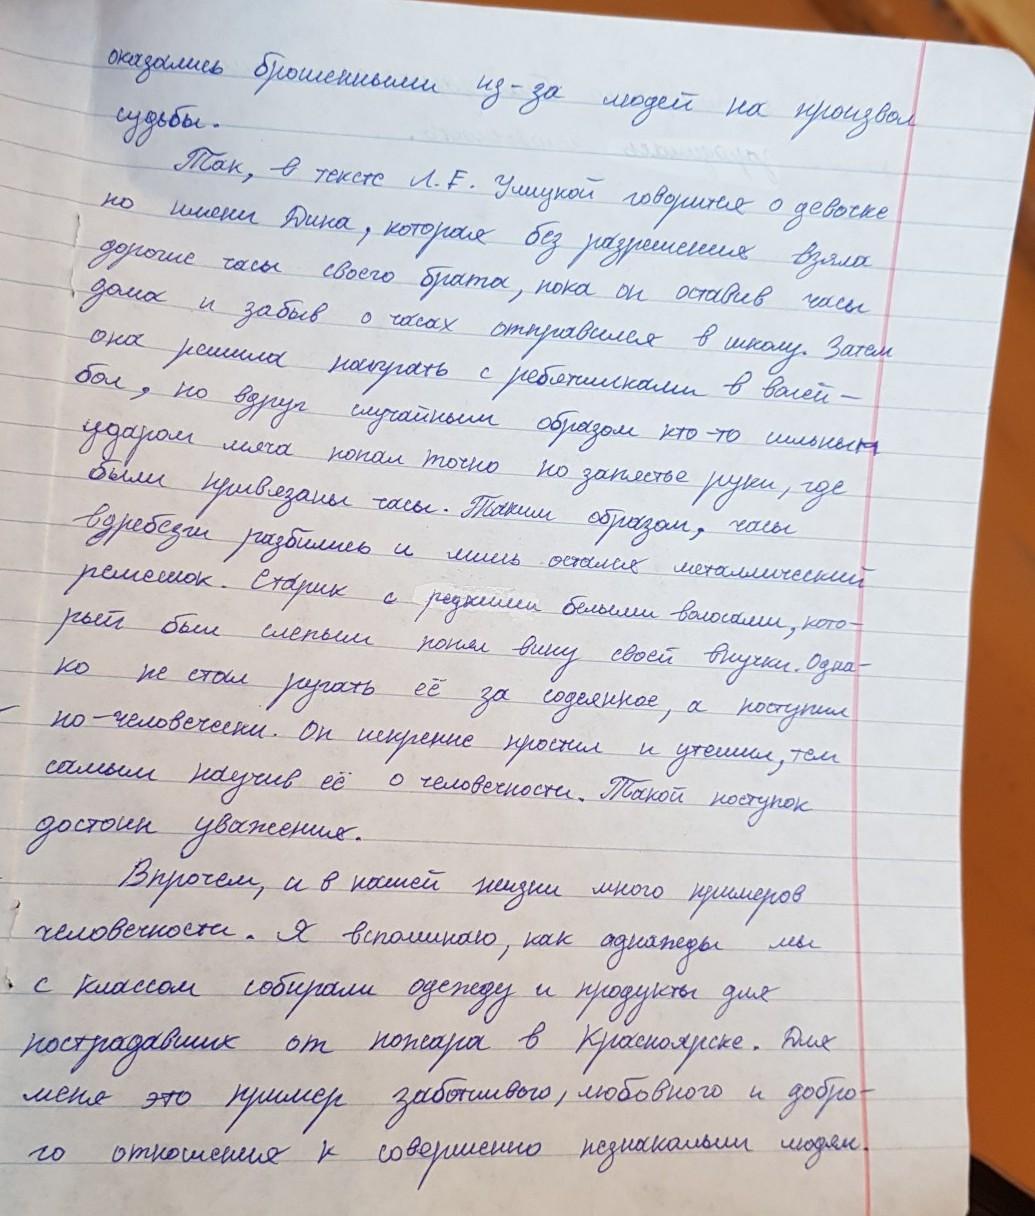 оказались брошенными из-за людей на произвол
судьбы.
Так, в тексте Л.Е. Улицкой говорится о девочке
по имени Дина, которая без разрешения взяла
дорогие часы своего брата, пока он оставив часы
дома и забыв о часах отправился в школу. Затем
она решила наиграть с ребятишками в волей-
бол, но вдруг случайным образом кто-то сильным
ударом мяча попал точно по запястье руки, где
были привязаны часы. Таким образом, часы
вдребезги разбились и лишь остался металлический
ремешок. Старик с редкими белыми волосами, кото-
рый был слепым понял вину своей внучки. Одна-
ко не стал ругать её за содеянное, а поступил
по-человечески. Он искренне простил и утешил, тем
самым научив её о человечности. Такой поступок
достоин уважения.
Впрочем, и в нашей жизни много примеров
человечности. Я вспоминаю, как однажды мы
с классом собирали одежду и продукты для
пострадавших от пожара в Красноярске. Для
меня это пример заботливого, любовного и добро-
го отношения к совершенно незнакомым людям.